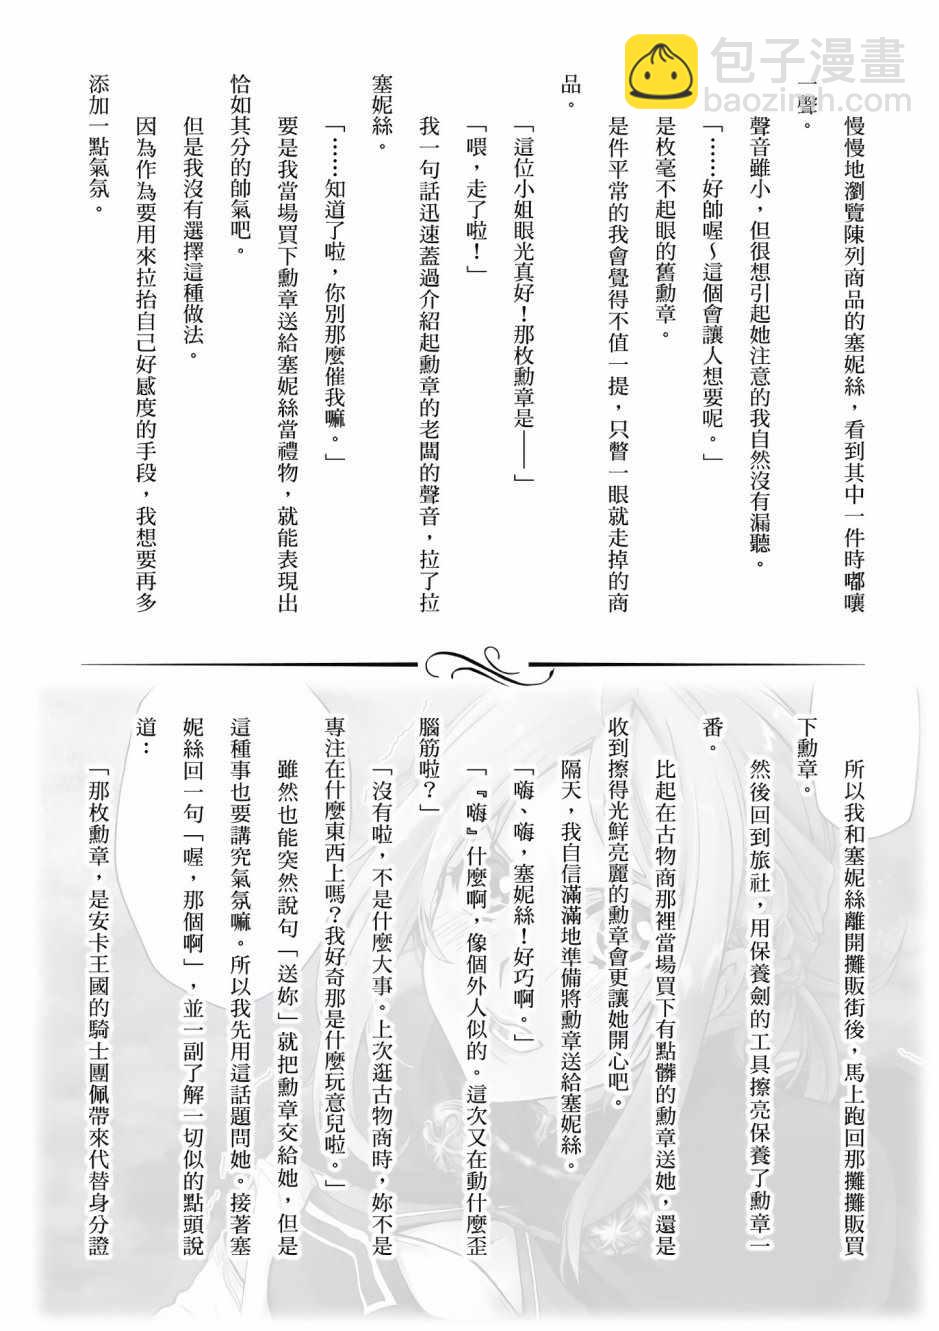 包子漫畫
baozimh.com
慢慢地瀏覽陳列商品的塞妮絲，看到其中一件時嘟嚷
一聲。
聲音雖小，但很想引起她注意的我自然沒有漏聽。
「……好帥喔～這個會讓人想要呢。」
是枚毫不起眼的舊勳章。
是件平常的我會覺得不值一提，只瞥一眼就走掉的商
品。
「這位小姐眼光真好！那枚勳章是——」
「喂，走了啦！」
我一句話迅速蓋過介紹起勳章的老闆的聲音，拉了拉
塞妮絲。
「……知道了啦，你別那麼催我嘛。」
要是我當場買下勳章送給塞妮絲當禮物，就能表現出
恰如其分的帥氣吧。
但是我沒有選擇這種做法。
因為作為要用來拉抬自己好感度的手段，我想要再多
添加一點氣氛。
所以我和塞妮絲離開攤販街後，馬上跑回那攤攤販買
下勳章。
然後回到旅社，用保養劍的工具擦亮保養了勳章一
番。
比起在古物商那裡當場買下有點髒的勳章送她，還是
收到擦得光鮮亮麗的勳章會更讓她開心吧。
隔天，我自信滿滿地準備將勳章送給塞妮絲。
「嗨、嗨，塞妮絲！好巧啊。」
「『嗨』什麼啊，像個外人似的。這次又在動什麼歪
腦筋啦？」
「沒有啦，不是什麼大事。上次逛古物商時，妳不是
專注在什麼東西上嗎？我好奇那是什麼玩意兒啦。」
雖然也能突然說句「送妳」就把勳章交給她，但是
這種事也要講究氣氛嘛。所以我先用這話題問她。接著塞
妮絲回一句「喔，那個啊」，並一副了解一切似的點頭說
道：
「那枚勳章，是安卡王國的騎士團佩帶來代替身分證